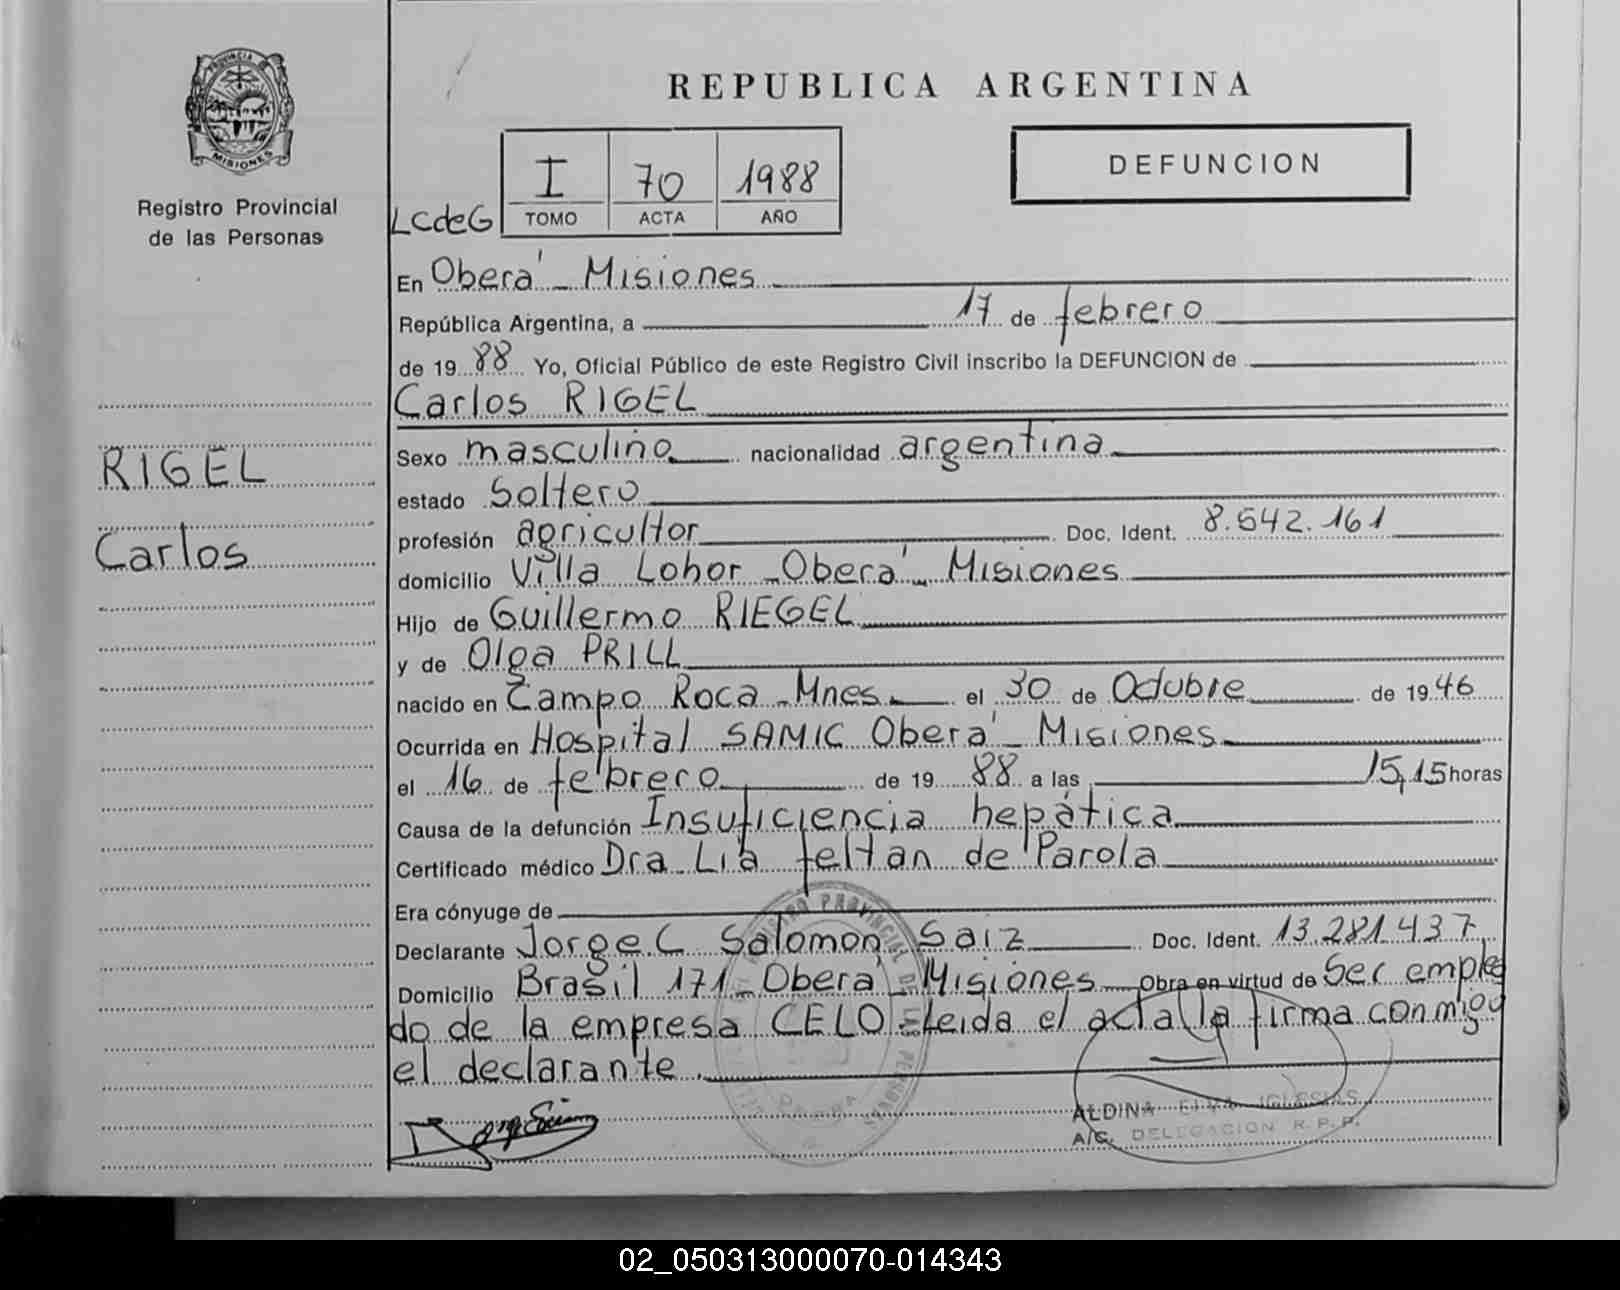 PROVINCIA DE
MISIONES
Registro Provincial
de las Personas
RIGEL
Carlos
REPUBLICA ARGENTINA
DEFUNCION
I 70 1988
LCdeG TOMO ACTA AÑO
En Oberá - Misiones
República Argentina, a 17 de febrero
de 1988 Yo, Oficial Público de este Registro Civil inscribo la DEFUNCION de
Carlos RIGEL
Sexo masculino nacionalidad argentina
estado Soltero
profesión agricultor Doc. Ident. 8.642.161
domicilio Villa Lohor - Oberá - Misiones
Hijo de Guillermo RIEGEL
y de Olga PRILL
nacido en Campo Roca - Mnes. el 30 de Octubre de 1946
Ocurrida en Hospital SAMIC Oberá - Misiones
el 16 de febrero de 1988 a las 15,15 horas
Causa de la defunción Insuficiencia hepática
Certificado médico Dra. Lia feltan de Parola
Era cónyuge de
Declarante Jorge C. Salomon Saiz Doc. Ident. 13.281.437
Domicilio Brasil 171 - Oberá - Misiones Obra en virtud de Ser emplea
do de la empresa CELO - Leida el acta la firma conmigo
el declarante.
ALDINA ELVA IGLESIAS
A/C. DELEGACION R.P.P.
02_050313000070-014343